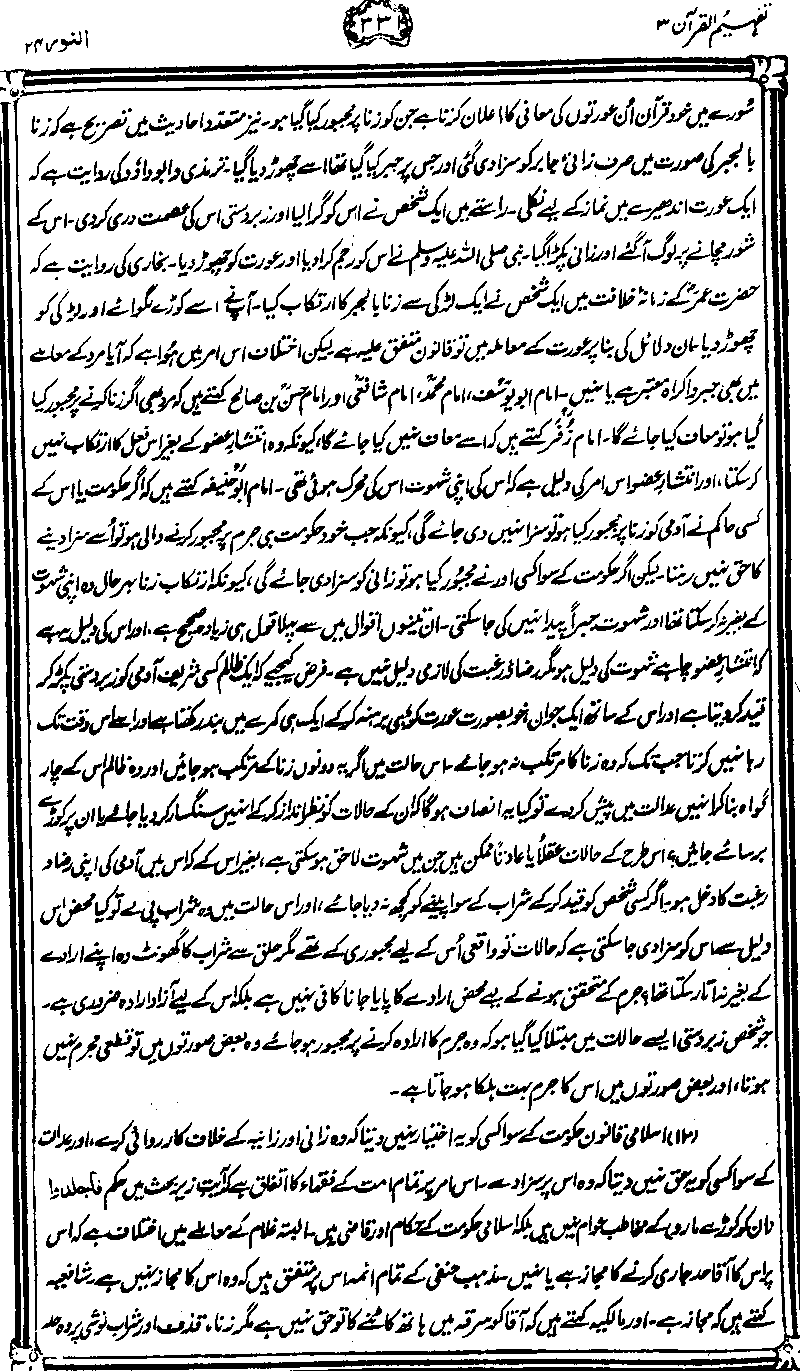 تفہیم القرآن ۳
۳۳۱
النور ۲۴
سُورے میں خود قرآن اُن عورتوں کی معافی کا اعلان کرتا ہے جن کو زنا پر مجبور کیا گیا ہو۔ نیز متعدد احادیث میں تصریح ہے کہ زنا
بالجبر کی صورت میں صرف زانئ جابر کو سزا دی گئی اور جس پر جبر کیا گیا تھا اسے چھوڑ دیا گیا۔ ترمذی و ابوداؤد کی روایت ہے کہ
ایک عورت اندھیرے میں نماز کے لیے نکلی۔ راستے میں ایک شخص نے اس کو گرا لیا اور زبردستی اس کی عصمت دری کر دی۔ اس کے
شور مچانے پر لوگ آگئے اور زانی پکڑا گیا۔ نبی صلی اللہ علیہ وسلم نے اس کو رجم کرا دیا اور عورت کو چھوڑ دیا۔ بخاری کی روایت ہے کہ
حضرت عمرؓ کے زمانۂ خلافت میں ایک شخص نے ایک لڑکی سے زنا بالجبر کا ارتکاب کیا۔ آپ نے اسے کوڑے لگوائے اور لڑکی کو
چھوڑ دیا۔ ان دلائل کی بنا پر عورت کے معاملہ میں تو قانون متفق علیہ ہے لیکن اختلاف اس امر میں ہُوا ہے کہ آیا مرد کے معاملے
میں بھی جبر و اکراہ معتبر ہے یا نہیں۔ امام ابو یوسفؒ، امام محمدؒ، امام شافعیؒ اور امام حسنؒ بن صالح کہتے ہیں کہ مرد بھی اگر زنا کرنے پر مجبور کیا
گیا ہو تو معاف کیا جائے گا۔ امام زُفَر کہتے ہیں کہ اسے معاف نہیں کیا جائے گا، کیونکہ وہ انتشارِ عضو کے بغیر اس فعل کا ارتکاب نہیں
کر سکتا، اور انتشارِ عضو اس امر کی دلیل ہے کہ اس کی اپنی شہوت اس کی محرک ہوئی تھی۔ امام ابوحنیفہؒ کہتے ہیں کہ اگر حکومت یا اس کے
کسی حاکم نے آدمی کو زنا پر مجبور کیا ہو تو سزا نہیں دی جائے گی، کیونکہ جب خود حکومت ہی جرم پر مجبور کرنے والی ہو تو اُسے سزا دینے
کا حق نہیں رہتا۔ لیکن اگر حکومت کے سوا کسی اور نے مجبور کیا ہو تو زانی کو سزا دی جائے گی، کیونکہ ارتکابِ زنا بہرحال وہ اپنی شہوت
کے بغیر نہ کر سکتا تھا اور شہوت جبراً پیدا نہیں کی جا سکتی۔ ان تینوں اقوال میں سے پہلا قول ہی زیادہ صحیح ہے، اور اس کی دلیل یہ ہے
کہ انتشارِ عضو چاہے شہوت کی دلیل ہو مگر رضا و رغبت کی لازمی دلیل نہیں ہے۔ فرض کیجیے کہ ایک ظالم کسی شریف آدمی کو زبردستی پکڑ کر
قید کر دیتا ہے اور اس کے ساتھ ایک جوان، خوبصورت عورت کو بھی برہنہ کر کے ایک ہی کمرے میں بند رکھتا ہے اور اسے اس وقت تک
رہا نہیں کرتا جب تک کہ وہ زنا کا مرتکب نہ ہو جائے۔ اس حالت میں اگر یہ دونوں زنا کے مرتکب ہو جائیں اور وہ ظالم اس کے چار
گواہ بنا کر انہیں عدالت میں پیش کر دے تو کیا یہ انصاف ہوگا کہ ان کے حالات کو نظر انداز کر کے انہیں سنگسار کر دیا جائے یا ان پر کوڑے
برسائے جائیں؟ اس طرح کے حالات عقلاً یا عادتاً ممکن ہیں جن میں شہوت لاحق ہو سکتی ہے، بغیر اس کے کہ اس میں آدمی کی اپنی رضا و
رغبت کا دخل ہو۔ اگر کسی شخص کو قید کر کے شراب کے سوا پینے کو کچھ نہ دیا جائے، اور اس حالت میں وہ شراب پی لے تو کیا محض اس
دلیل سے اس کو سزا دی جا سکتی ہے کہ حالات تو واقعی اُس کے لیے مجبوری کے تھے مگر حلق سے شراب کا گھونٹ وہ اپنے ارادے
کے بغیر نہ اتار سکتا تھا؟ جرم کے متحقق ہونے کے لیے محض ارادے کا پایا جانا کافی نہیں ہے بلکہ اس کے لیے آزاد ارادہ ضروری ہے۔
جو شخص زبردستی ایسے حالات میں مبتلا کیا گیا ہو کہ وہ جرم کا ارادہ کرنے پر مجبور ہو جائے وہ بعض صورتوں میں تو قطعی مجرم نہیں
ہوتا، اور بعض صورتوں میں اس کا جرم بہت ہلکا ہو جاتا ہے۔
(۱۲) اسلامی قانون حکومت کے سوا کسی کو یہ اختیار نہیں دیتا کہ وہ زانی اور زانیہ کے خلاف کارروائی کرے، اور عدالت
کے سوا کسی کو یہ حق نہیں دیتا کہ وہ اس پر سزا دے۔ اس امر پر تمام امت کے فقہاء کا اتفاق ہے کہ آیتِ زیر بحث میں حکم فاجلدوا
(ان کو کوڑے مارو) کے مخاطب عوام نہیں ہیں بلکہ اسلامی حکومت کے حکام اور قاضی ہیں۔ البتہ غلام کے معاملے میں اختلاف ہے کہ اس
پر اس کا آقا حد جاری کرنے کا مجاز ہے یا نہیں۔ مذہب حنفی کے تمام ائمہ اس پر متفق ہیں کہ وہ اس کا مجاز نہیں ہے۔ شافعیہ
کہتے ہیں کہ مجاز ہے۔ اور مالکیہ کہتے ہیں کہ آقا کو سرقہ میں ہاتھ کاٹنے کا تو حق نہیں ہے مگر زنا، قذف اور شراب نوشی پر وہ حد